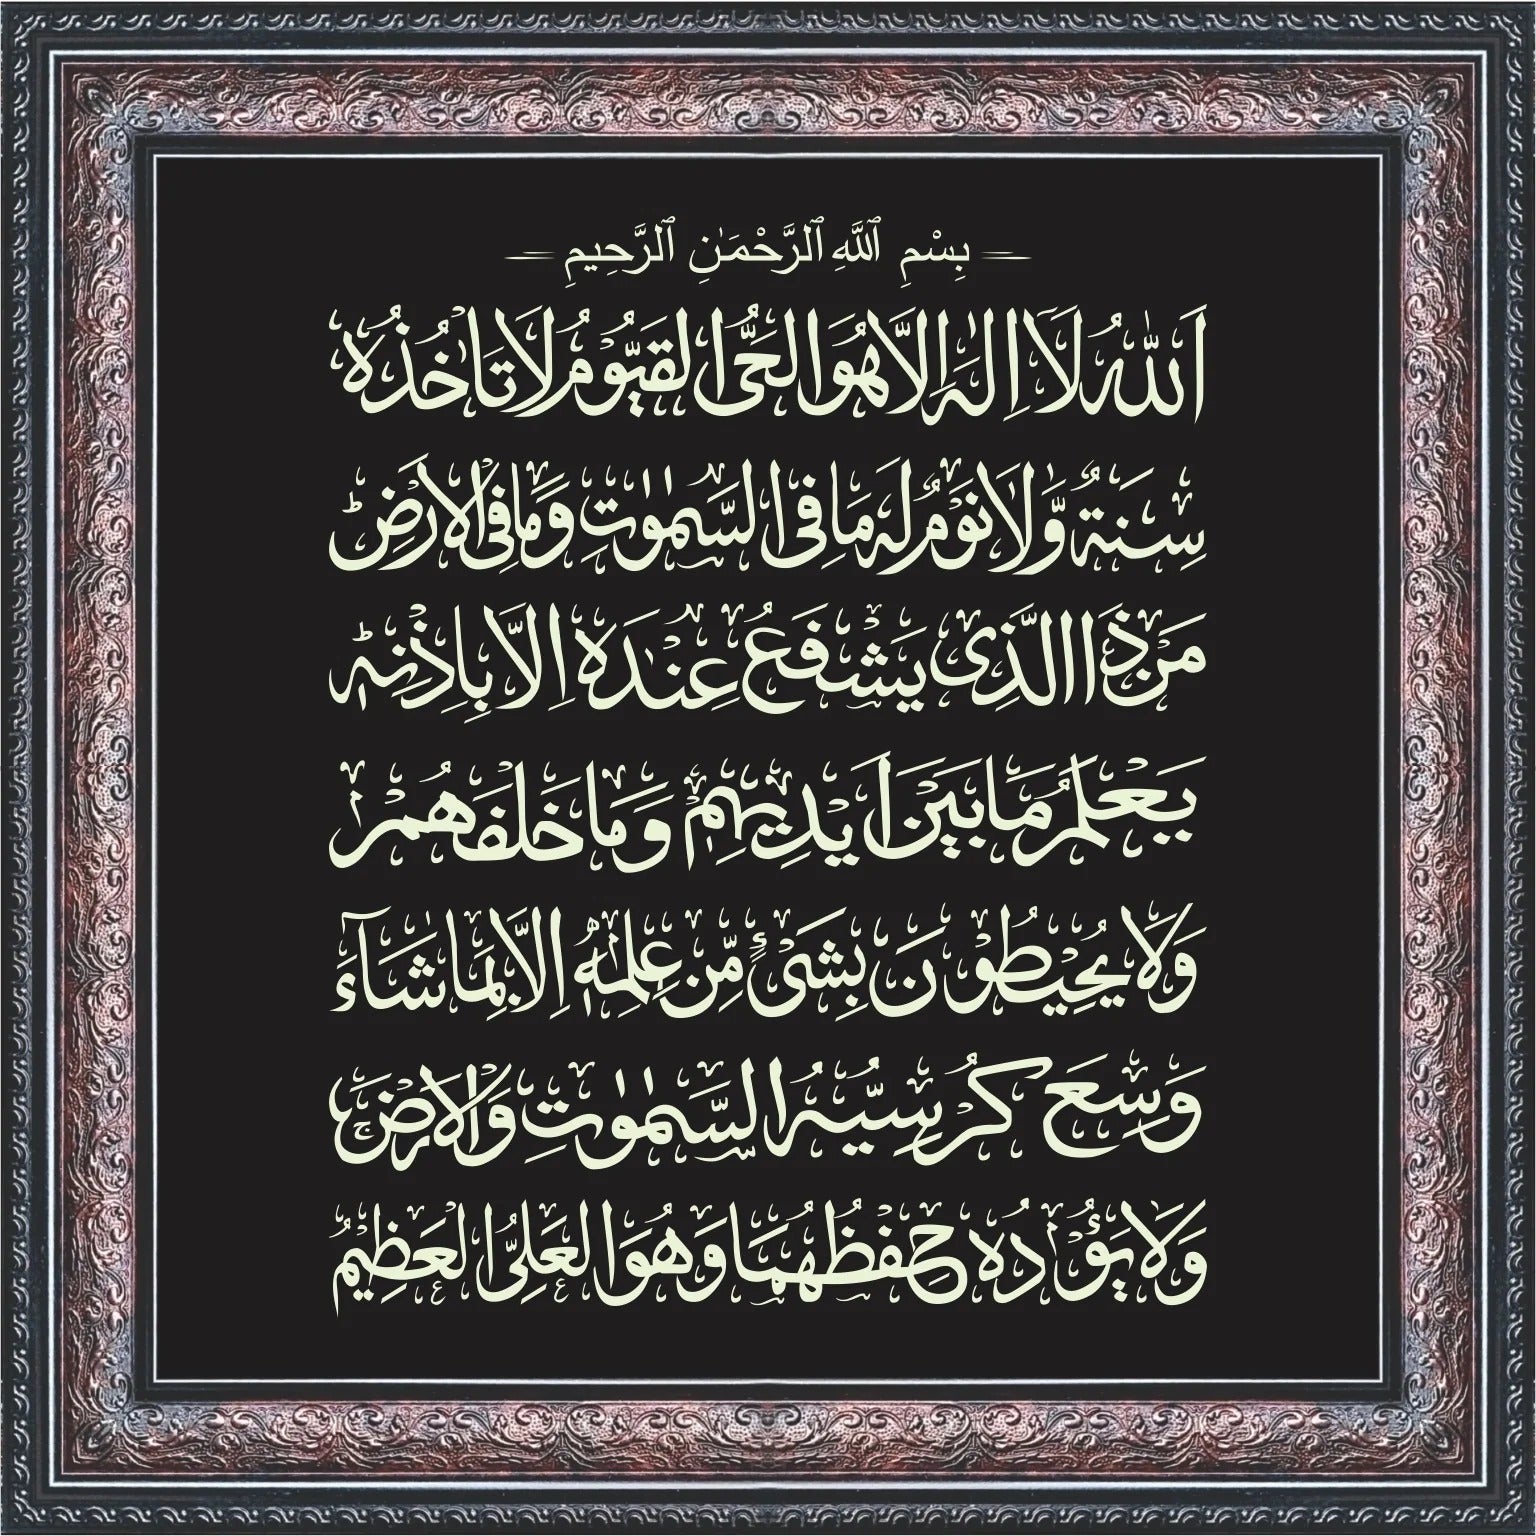 بِسْمِ ٱللَّهِ ٱلرَّحْمَـٰنِ ٱلرَّحِيمِ
اَللّٰهُ لَاۤ اِلٰهَ اِلَّا هُوَ الْحَىُّ الْقَيُّوْمُ لَا تَاْخُذُهٗ
سِنَةٌ وَّلَا نَوْمٌ لَهٗ مَا فِى السَّمٰوٰتِ وَمَا فِى الْاَرْضِؕ
مَنْ ذَا الَّذِىْ يَشْفَعُ عِنْدَهٗۤ اِلَّا بِاِذْنِهٖؕ
يَعْلَمُ مَا بَيْنَ اَيْدِيْهِمْ وَمَا خَلْفَهُمْۚ
وَلَا يُحِيْطُوْنَ بِشَىْءٍ مِّنْ عِلْمِهٖۤ اِلَّا بِمَا شَآءَ
وَسِعَ كُرْسِيُّهُ السَّمٰوٰتِ وَالْاَرْضَۚ
وَلَا يَؤُدُهٗ حِفْظُهُمَا وَهُوَ الْعَلِىُّ الْعَظِيْمُ